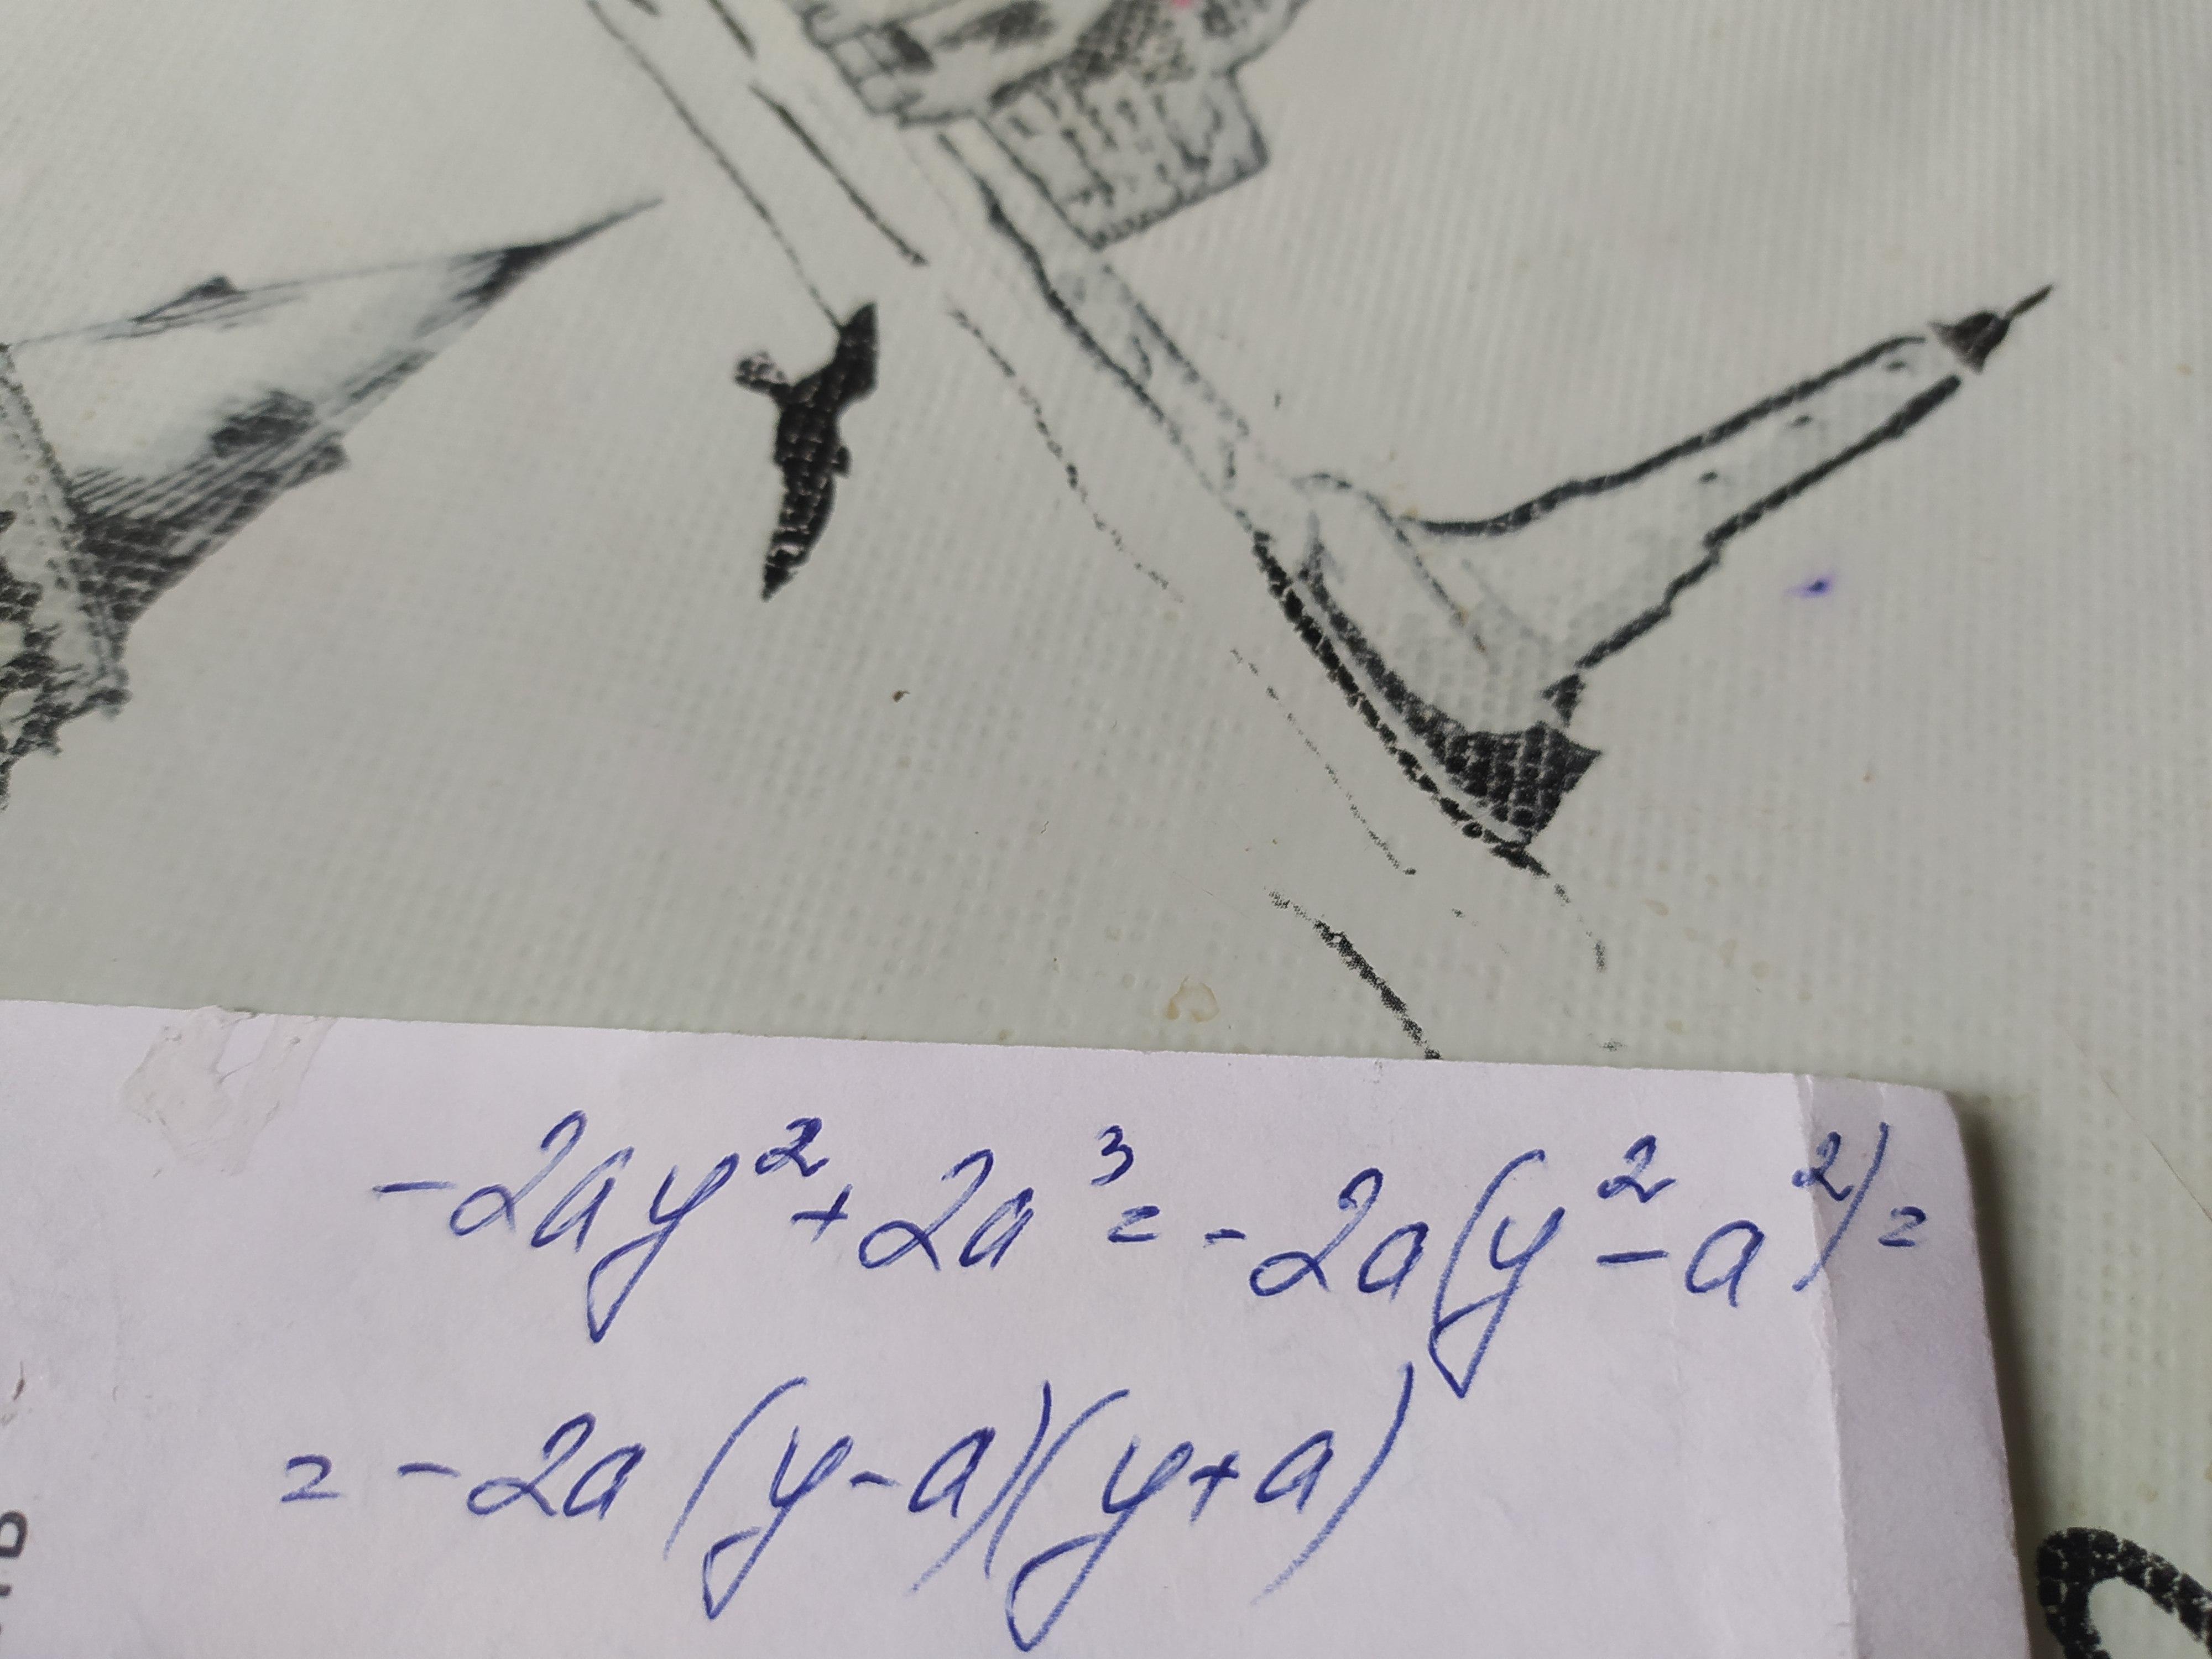 -2ay²+2a³=-2a(y²-a²)=
=-2a(y-a)(y+a)